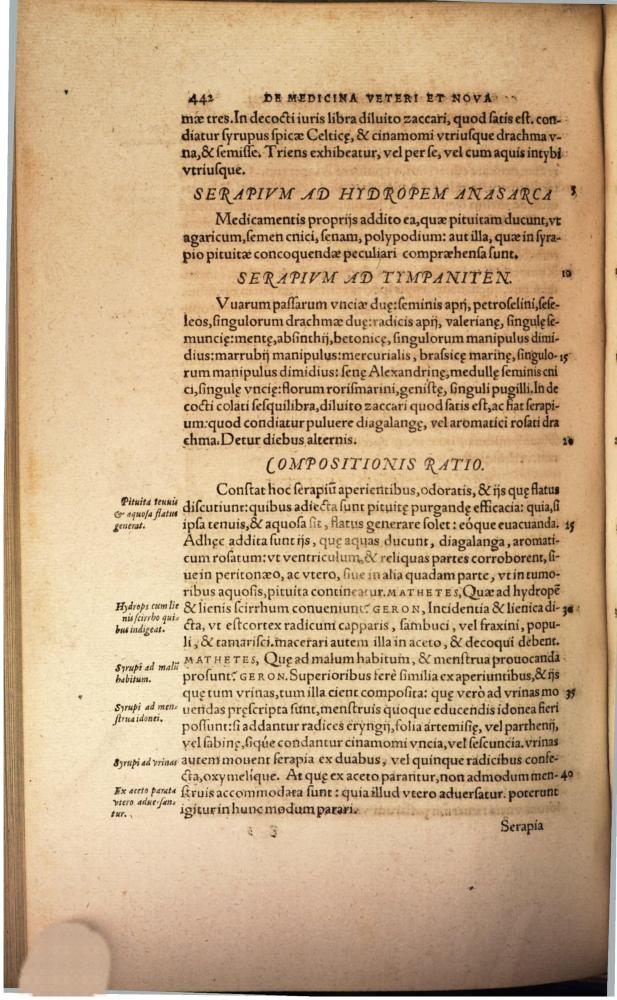 442 DE MEDICINA VETERI ET NOVA
mæ tres. In decocti iuris libra diluito zaccari, quod satis est. con-
diatur syrupus spicæ Celticę, & cinamomi vtriusque drachma v-
na, & semisse. Triens exhibeatur, vel per se, vel cum aquis intybi
vtriusque.
SERAPIVM AD HYDROPEM ANASARCA 5
Medicamentis proprijs addito ea, quæ pituitam ducunt, vt
agaricum, semen cnici, senam, polypodium: aut illa, quæ in syra-
pio pituitæ concoquendæ peculiari compræhensa sunt.
SERAPIVM AD TYMPANITEN. 10
Vuarum passarum vnciæ duę: seminis apij, petroselini, sese-
leos, singulorum drachmæ duę: radicis apij, valerianę, singulę se-
muncię: mentę, absinthij, betonicę, singulorum manipulus dimi-
dius: marrubij manipulus: mercurialis, brassicę marinę, singulo- 15
rum manipulus dimidius: senę Alexandrinę, medullę seminis cni
ci, singulę vncię: florum rorismarini, genistę, singuli pugilli. In de
cocti colati sesquilibra, diluito zaccari quod satis est, ac fiat serapi-
um: quod condiatur puluere diagalangę, vel aromatici rosati dra
chma. Detur diebus alternis. 20
COMPOSITIONIS RATIO.
Constat hoc serapiũ aperientibus, odoratis, & ijs quę flatus
discutiunt: quibus adiecta sunt pituitę purgandę efficacia: quia, si
Pituita tenuis
& aquosa flatus
generat.
ipsa tenuis, & aquosa sit, flatus generare solet: eóque euacuanda. 25
Adhęc addita sunt ijs, quę aquas ducunt, diagalanga, aromati-
cum rosatum: vt ventriculum, & reliquas partes corroborent, si-
ue in peritonæo, ac vtero, siue in alia quadam parte, vt in tumo-
ribus aquosis, pituita contineatur. MATHETES, Quæ ad hydropẽ
Hydrops cum lie
nis scirrho qui-
bus indigeat.
& lienis scirrhum conueniunt? GERON, Incidentia & lienica di- 30
cta, vt est cortex radicum capparis, sambuci, vel fraxini, popu-
li, & tamarisci. macerari autem illa in aceto, & decoqui debent.
MATHETES, Quę ad malum habitum, & menstrua prouocanda
Syrupi ad malũ
habitum.
prosunt? GERON. Superioribus ferè similia ex aperiuntibus, & ijs
quę tum vrinas, tum illa cient composita: quę verò ad vrinas mo 35
Syrupi ad men-
strua idonei.
uendas pręscripta sunt, menstruis quoque educendis idonea fieri
possunt: si addantur radices eryngij, folia artemisię, vel parthenij,
vel sabinę, siqúe condantur cinamomi vncia, vel sescuncia. vrinas
Syrupi ad vrinas
autem mouent serapia ex duabus, vel quinque radicibus confe-
cta, oxymelique. At quę ex aceto parantur, non admodum men- 40
Ex aceto parata
vtero aduersan-
tur.
struis accommodata sunt: quia illud vtero aduersatur. poterunt
igitur in hunc modum parari.
Serapia